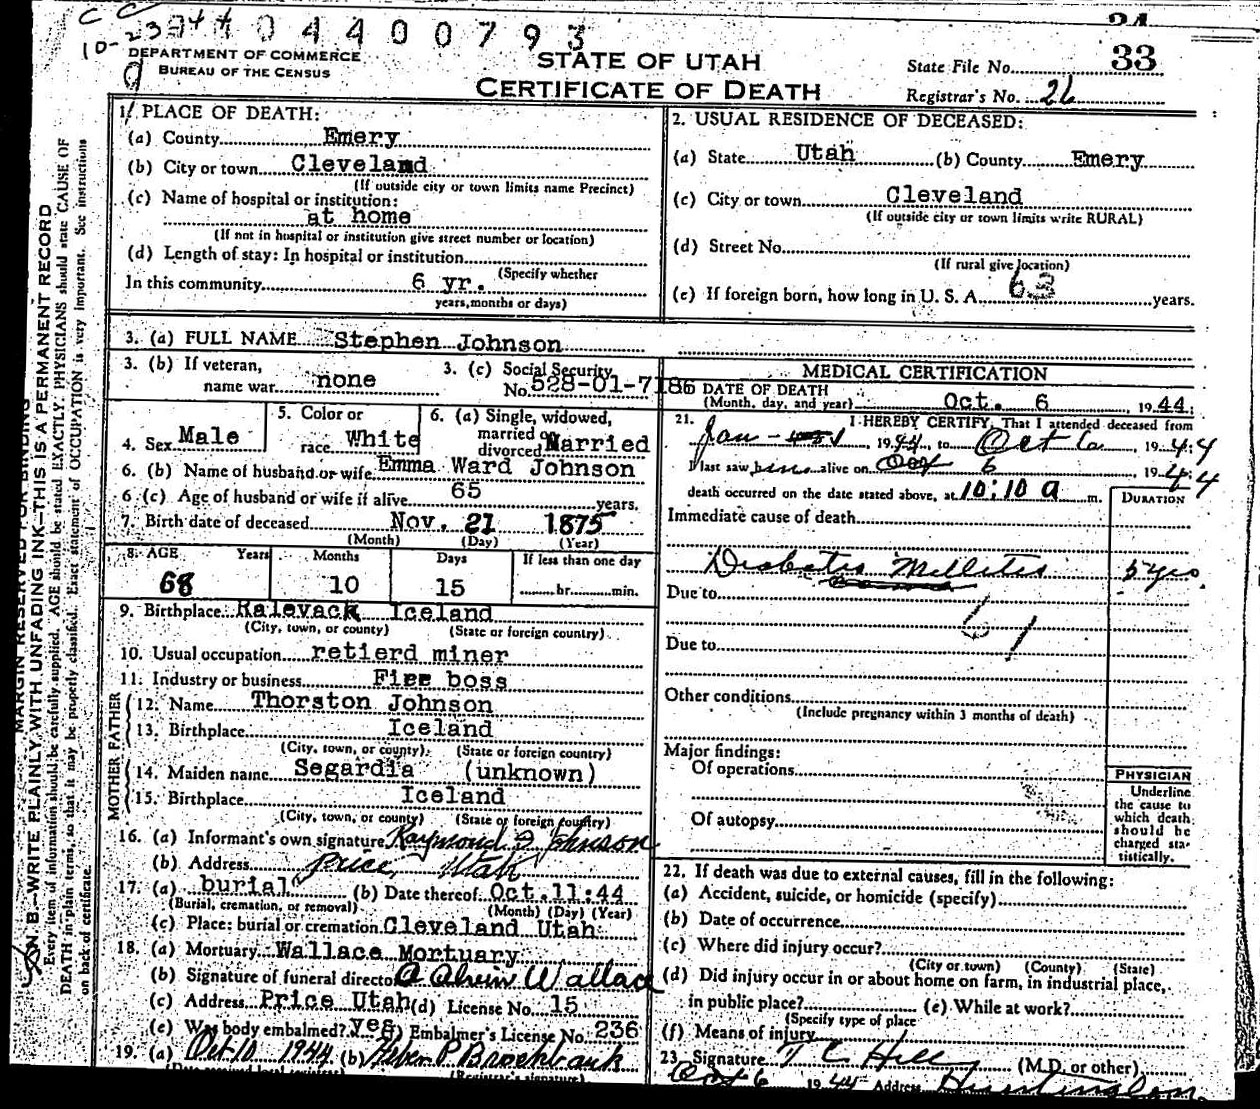 C C
10-23-44 1 0 4 4 0 0 7 9 3
34
DEPARTMENT OF COMMERCE
BUREAU OF THE CENSUS
STATE OF UTAH
CERTIFICATE OF DEATH
State File No. 33
Registrar's No. 26
MARGIN RESERVED FOR BINDING
N. B.—WRITE PLAINLY, WITH UNFADING INK—THIS IS A PERMANENT RECORD
Every item of information should be carefully supplied. AGE should be stated EXACTLY. PHYSICIANS should state CAUSE OF
DEATH in plain terms, so that it may be properly classified. Exact statement of OCCUPATION is very important. See instructions
on back of certificate.
1. PLACE OF DEATH:
(a) County Emery
(b) City or town Cleveland
(If outside city or town limits name Precinct)
(c) Name of hospital or institution:
at home
(If not in hospital or institution give street number or location)
(d) Length of stay: In hospital or institution
(Specify whether
In this community 6 yr.
years, months or days)
2. USUAL RESIDENCE OF DECEASED:
(a) State Utah (b) County Emery
(c) City or town Cleveland
(If outside city or town limits write RURAL)
(d) Street No.
(If rural give location)
(e) If foreign born, how long in U. S. A. 63 years.
3. (a) FULL NAME Stephen Johnson
3. (b) If veteran, name war none
3. (c) Social Security No. 528-01-7186
4. Sex Male
5. Color or race White
6. (a) Single, widowed, married or divorced Married
6. (b) Name of husband or wife Emma Ward Johnson
6 (c) Age of husband or wife if alive 65 years.
7. Birth date of deceased Nov. 21 1875
(Month) (Day) (Year)
8. AGE Years Months Days If less than one day
68 10 15 hr. min.
9. Birthplace Kalevack Iceland
(City, town, or county) (State or foreign country)
10. Usual occupation retierd miner
11. Industry or business Fire boss
FATHER
12. Name Thorston Johnson
13. Birthplace Iceland
(City, town, or county) (State or foreign country)
MOTHER
14. Maiden name Segardia (unknown)
15. Birthplace Iceland
(City, town, or county) (State or foreign country)
16. (a) Informant's own signature Raymond Johnson
(b) Address Price, Utah
17. (a) burial (b) Date thereof Oct.11:44
(Burial, cremation, or removal) (Month) (Day) (Year)
(c) Place: burial or cremation Cleveland Utah
18. (a) Mortuary Wallace Mortuary
(b) Signature of funeral director A Alvin Wallace
(c) Address Price Utah (d) License No. 15
(e) Was body embalmed? yes (f) Embalmer's License No. 236
19. (a) Oct 10 1944 (b) Heber P Brockbank
(Date received local registrar) (Registrar's signature)
MEDICAL CERTIFICATION
DATE OF DEATH
(Month, day, and year) Oct. 6, 1944
21. I HEREBY CERTIFY, That I attended deceased from
Jan 1944, to Oct 6 1944
I last saw him alive on Oct 6 1944
death occurred on the date stated above, at 10:10 a m.
DURATION
Immediate cause of death
Diabetis Mellitis 5 yrs
Due to
61
Due to
Other conditions
(Include pregnancy within 3 months of death)
Major findings:
Of operations
Of autopsy
PHYSICIAN
Underline
the cause to
which death
should be
charged sta-
tistically.
22. If death was due to external causes, fill in the following:
(a) Accident, suicide, or homicide (specify)
(b) Date of occurrence
(c) Where did injury occur?
(City or town) (County) (State)
(d) Did injury occur in or about home on farm, in industrial place,
in public place? (e) While at work?
(Specify type of place
(f) Means of injury
23 Signature T C Hill (M.D. or other)
Oct 6 1944 Address Huntington